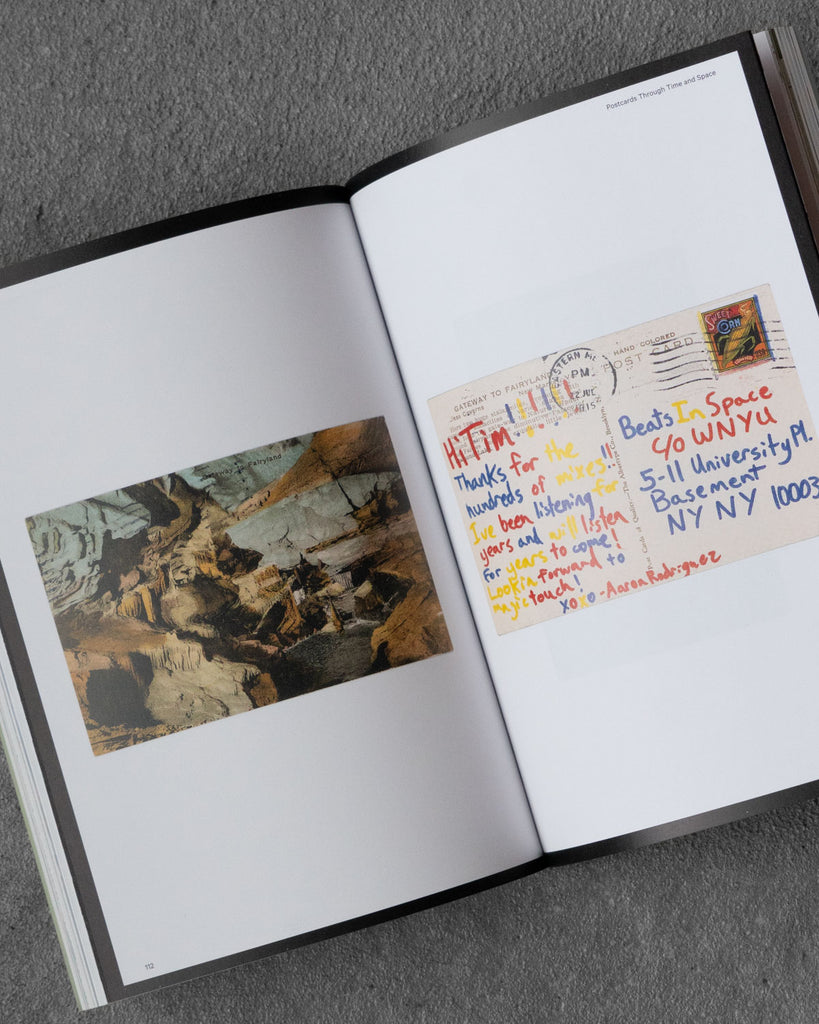 Postcards Through Time and Space
Gateway to Fairyland
112
HAND COLORED
POST CARD
SWEET
CORN
PM
JUL
GATEWAY TO FAIRYLAND
Hi Tim
Thanks for the
hundreds of mixes!!
I've been listening for
years and will listen
for years to come!
Lookin forward to
magic touch!
xoxo - Aaron Rodriguez
Beats In Space
c/o WNYU
5-11 University Pl.
Basement
NY NY 10003